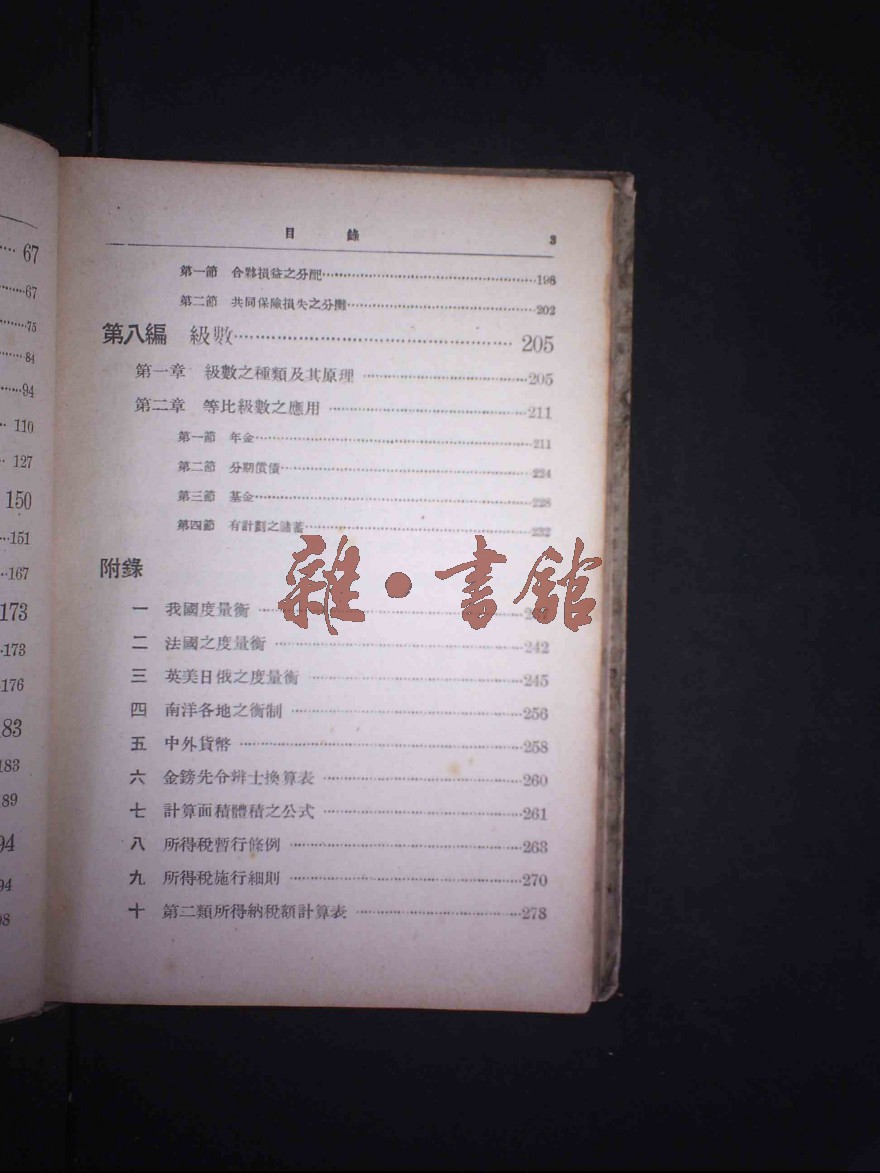 67
67
75
84
94
110
127
150
151
167
173
173
176
83
183
89
94
94
98
目錄 3
第一節 合夥損益之分配 198
第二節 共同保險損失之分攤 202
第八編 級數 205
第一章 級數之種類及其原理 205
第二章 等比級數之應用 211
第一節 年金 211
第二節 分期償債 224
第三節 基金 228
第四節 有計劃之儲蓄 232
附錄
雜·書館
一 我國度量衡
二 法國之度量衡 242
三 英美日俄之度量衡 245
四 南洋各地之衡制 256
五 中外貨幣 258
六 金鎊先令辨士換算表 260
七 計算面積體積之公式 261
八 所得稅暫行條例 263
九 所得稅施行細則 270
十 第二類所得納稅額計算表 278